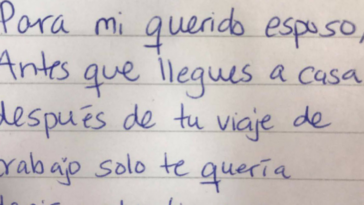 Para mi querido esposo,
Antes que llegues a casa
después de tu viaje de
rabajo solo te quería